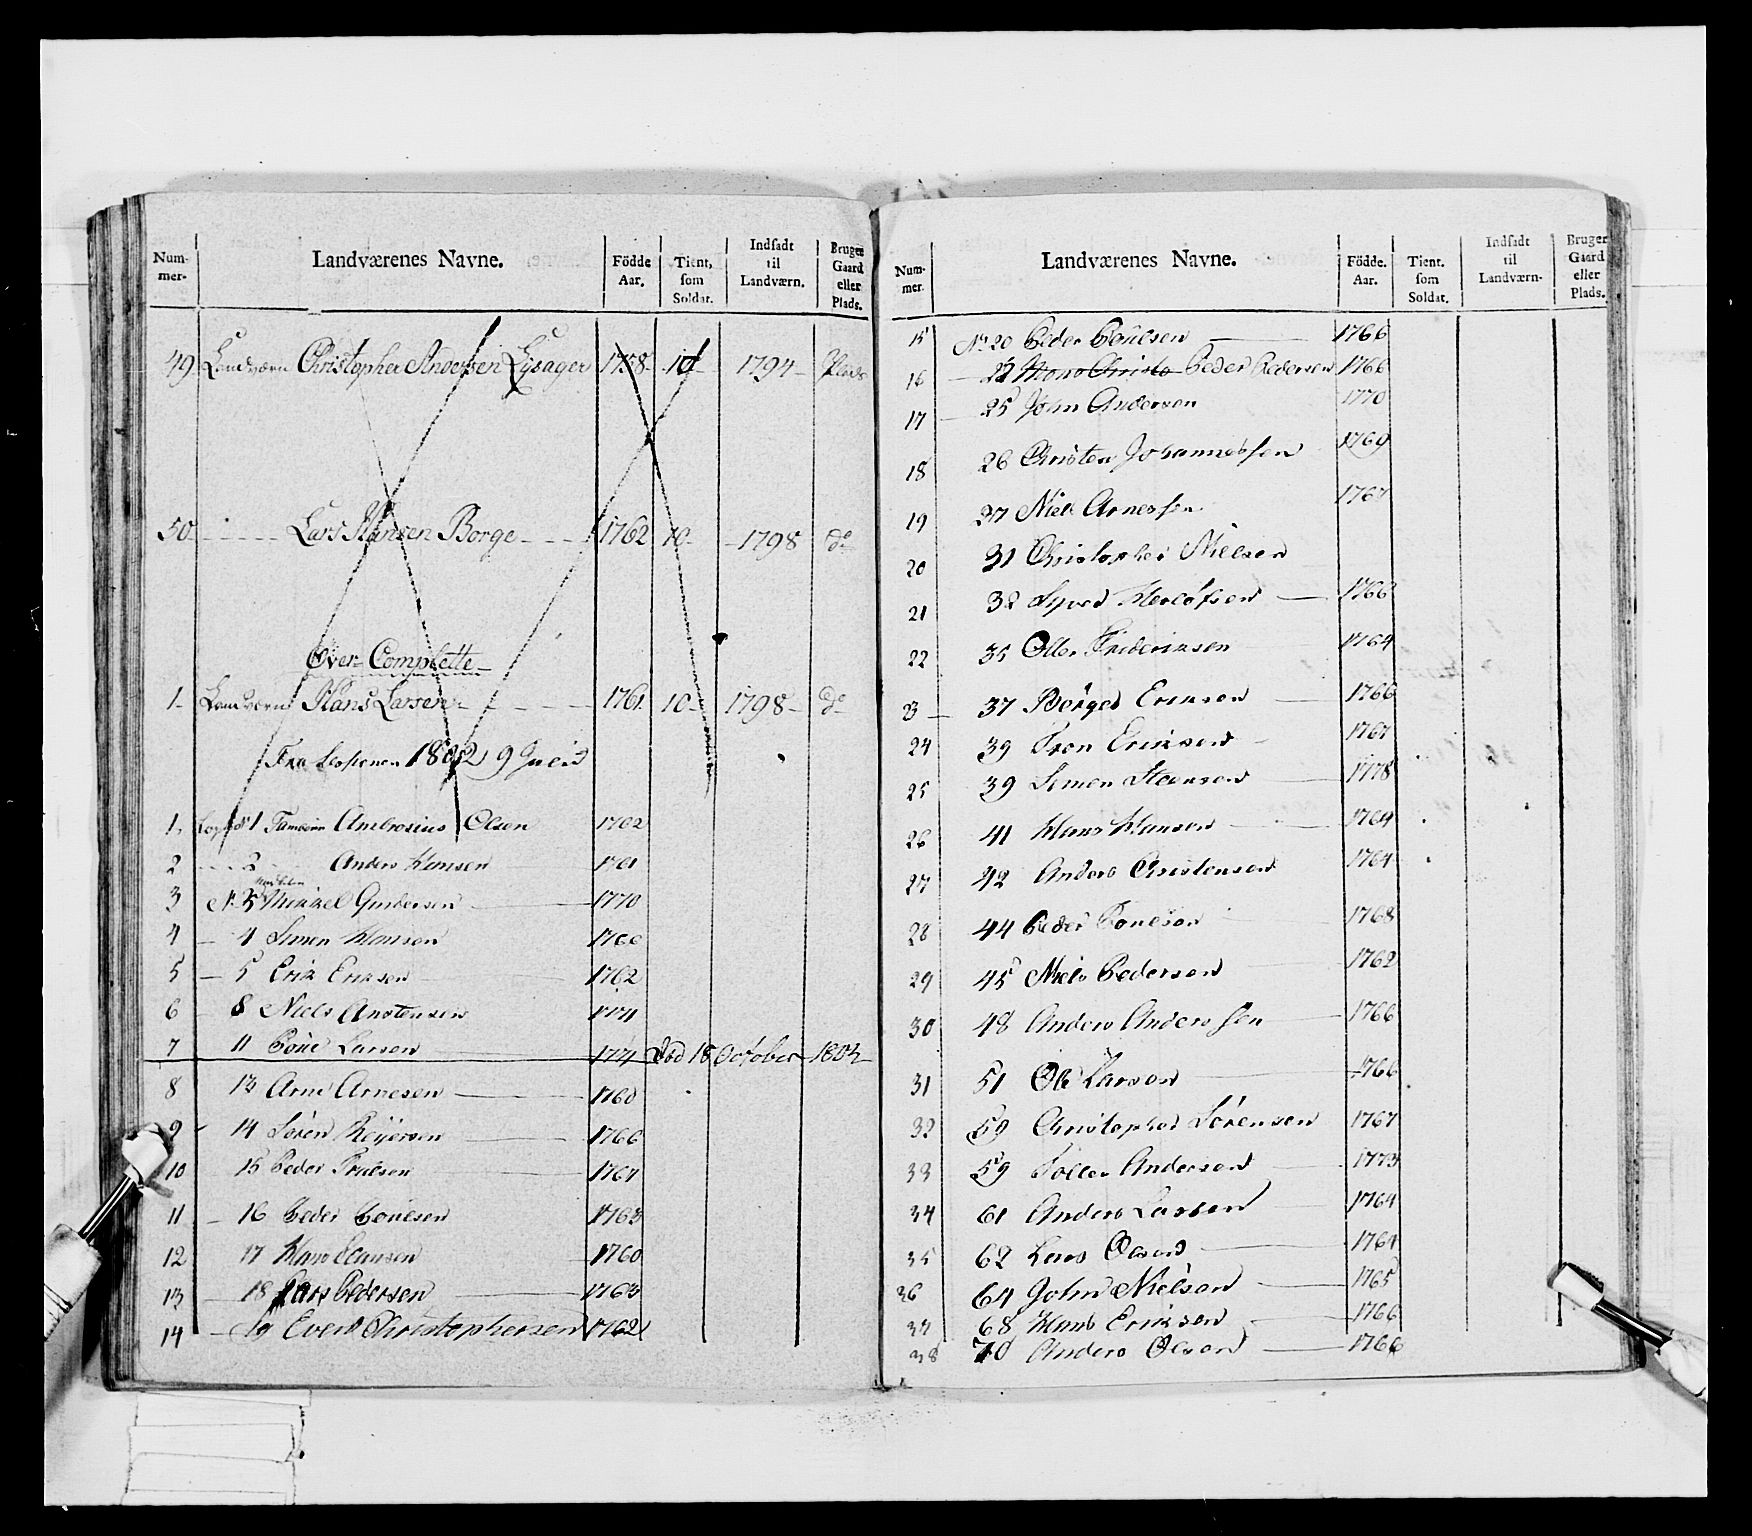 Num-mer. Landværenes Navne. Födde Aar. Tient. som Soldat. Indsadt til Landværn. Bruger Gaard eller Plads.
49 Landværn Christopher Andersen Lysager 1758 10 1794 Plads
50 Lars Hansen Borge 1762 10 1798 do
Over Complette
1 Landværn Hans Larsen 1761 10 1798 do
Fra Sessionen 1802 9 Junii
1 1 Tambour Ambrosius Olsen 1762
2 2 Anders Hansen 1761
3 No 3 Mikkel Gundersen 1770
4 4 Simen Hansen 1766
5 5 Erik Eriksen 1762
6 8 Niels Anstensen 1771
7 11 Poul Larsen 1771 Död 18 October 1802
8 13 Arne Arnesen 1760
9 14 Sören Reyersen 1766
10 15 Peder Truelsen 1764
11 16 Peder Poulsen 1763
12 17 Hans Clausen 1760
13 18 Lars Pedersen 1763
14 19 Even Christophersen 1762
Num-mer. Landværenes Navne. Födde. Aar. Tient. som Soldat. Indsadt til Landværn- Bruger Gaard eller Plads.
15 No 20 Peder Poulsen 1766
16 22 Peder Pedersen 1766
17 25 John Andersen 1770
18 26 Christen Johannessen 1769
19 27 Niels Arnessen 1767
20 31 Christopher Nielsen
21 32 Syver Herlofsen 1766
22 35 Oller Friderissen 1764
23 37 Börger Eriksen 1766
24 39 Iver Eriksen 1767
25 39 Simen Steensen 1778
26 41 Hans Hansen 1764
27 42 Anders Christensen 1764
28 44 Peder Poulsen 1768
29 45 Niels Pedersen 1762
30 48 Anders Andersen 1766
31 51 Ole Larsen 1766
32 59 Christopher Sörensen 1767
33 59 Toller Andersen 1773
34 61 Anders Larsen 1764
35 62 Lars Olsen 1764
36 64 John Nielsen 1765
37 68 Hans Eriksen 1766
38 70 Anders Olsen 1766